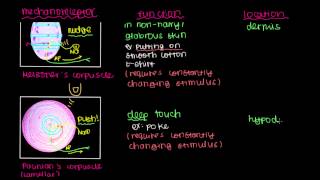 mechanoreceptor
function
location
nudge
AP
Na⊕
Meissner's corpuscle
in non-hairy/
glabrous skin
ex putting on
smooth cotton
t-shirt
(requires constantly
changing stimulus)
dermis
push!
Na⊕
AP
Pacinian's corpuscle
(lamellar)
deep touch
ex: poke
(requires constantly
changing stimulus)
hypod.